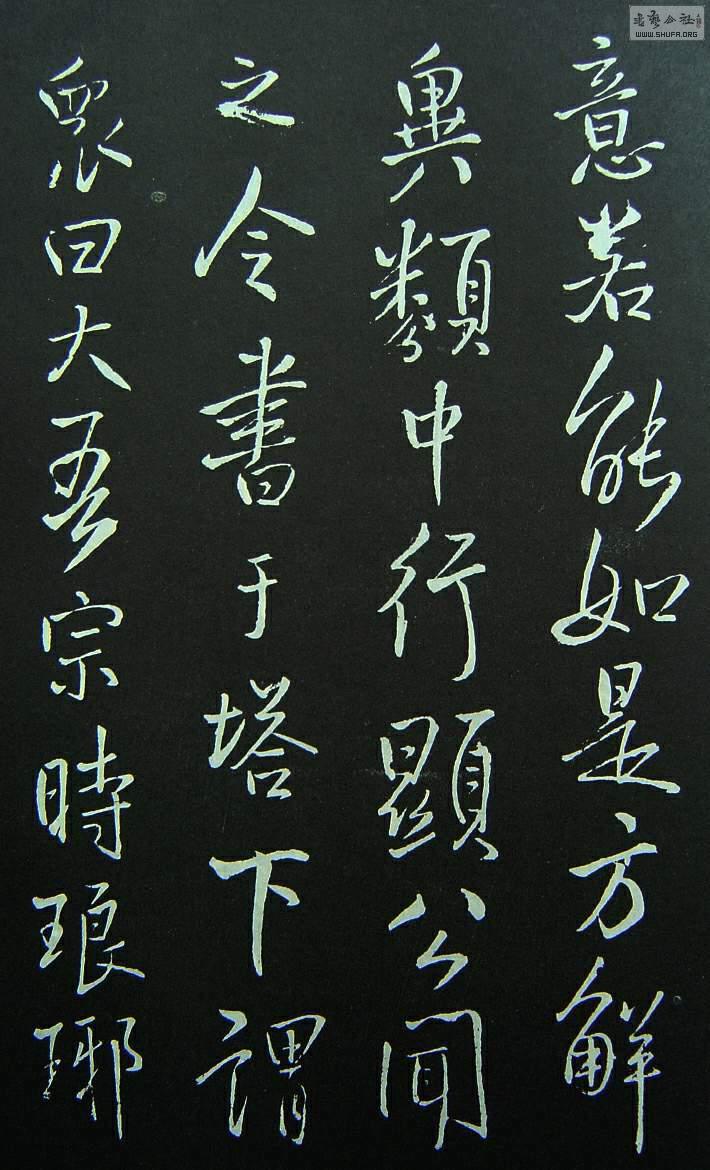 意若能如是方解
異類中行顯公聞
之令書于塔下謂
衆曰大吾宗時琅
瑯
WWW.SHUFA.ORG